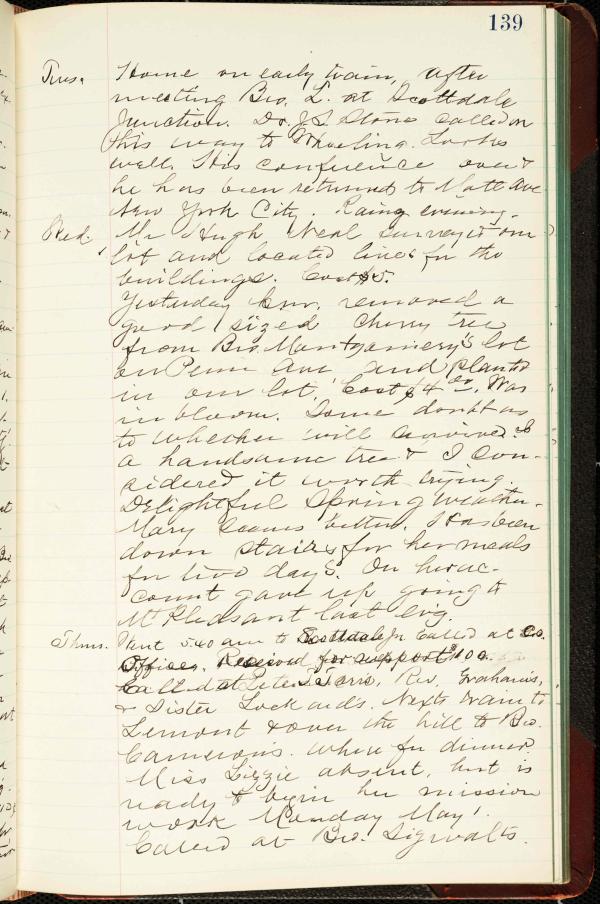 139
Tues. Home on early train, after
meeting Bro. L. at Scottdale
Junction. Dr. J S Stone called on
his way to Wheeling. Looks
well. His conference over &
he has been returned to Mott Ave
New York City. Rainy evening.
Wed. Mr Hugh Neal surveyed our
lot and located lines for the
buildings. Cost $5.
Yesterday removed a
good sized cherry tree
from Bro. Montgomery's lot
on Penn Ave and planted
in our lot. Cost $4 Was
in bloom. Some doubt as
to whether will survive. Is
a handsome tree & I con-
sidered it worth trying.
Delightful Spring weather.
Mary seems better. Has been
down stairs for her meals
for two days. On her ac-
count gave up going to
Mt Pleasant last evg.
Thurs. Went 5:40 am to Scottdale Called at Co.
Offices. Received for support $100.
Called at Peter Rev. Grahams,
& Sister Lockards. Next train to
Lemont & over the hill to Bro.
Camerons. Where for dinner.
Miss Lizzie absent, but is
ready to begin her mission
work Monday May 1.
Called at Bro. Sigwalts.